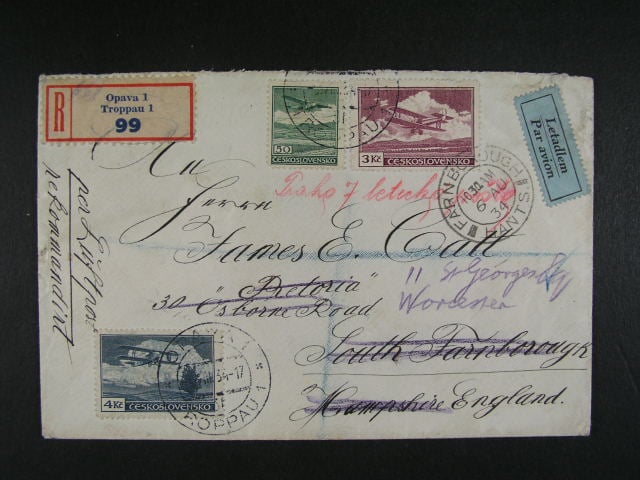 R
Opava 1
Troppau 1
99
50
ČESKOSLOVENSKO
3 Kč
ČESKOSLOVENSKO
Letadlem
Par avion
FARNBOROUGH
10.30 AM
6 AU
34
HANTS
An
Herrn
James E. Call
"Pretoria"
30 Osborne Road
11 St Georges
Worcester
South Farnborough
Hampshire England.
per Luftpost
rekommandirt
4 Kč
ČESKOSLOVENSKO
34-17
TROPPAU 1